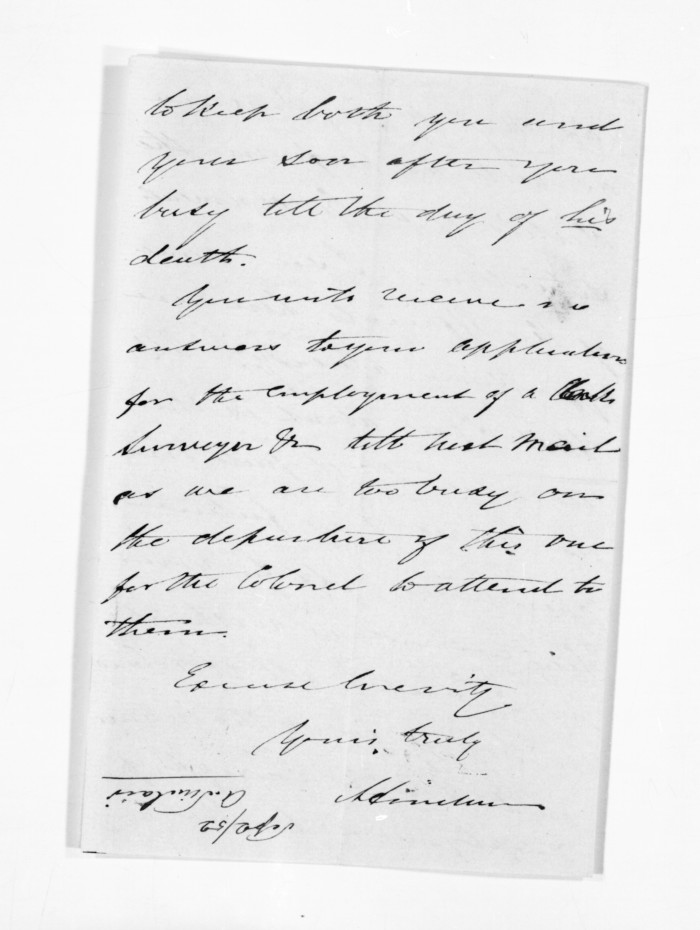 to keep both you and
your son after you
busy till the day of his
death.
You will receive no
answers to your application
for the employment of a
Surveyor &c till next mail
as we are too busy on
the departure of this one
for the Colonel to attend to
them.
Excuse brevity
Yours truly
A Sinclair
Sep 2/52